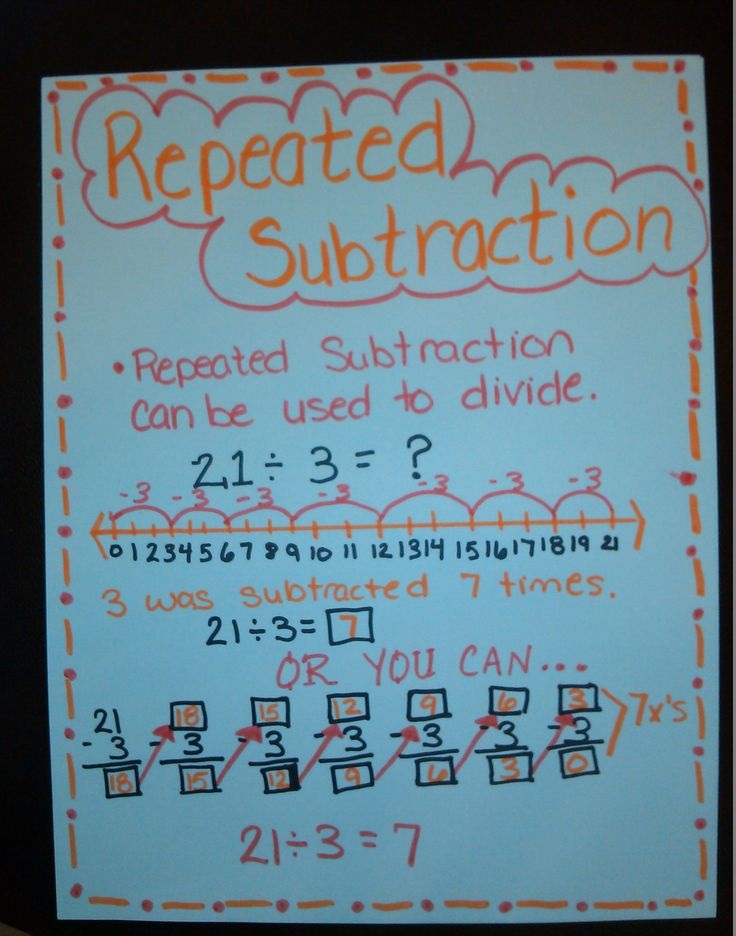 Repeated
Subtraction
• Repeated Subtraction
can be used to divide.
21 ÷ 3 = ?
-3 -3 -3 -3 -3 -3 -3
0 1 2 3 4 5 6 7 8 9 10 11 12 13 14 15 16 17 18 19 21
3 was subtracted 7 times.
21÷3= 7
OR YOU CAN...
21 18 15 12 9 6 3 7x's
-3 -3 -3 -3 -3 -3 -3
18 15 12 9 6 3 0
21÷3=7